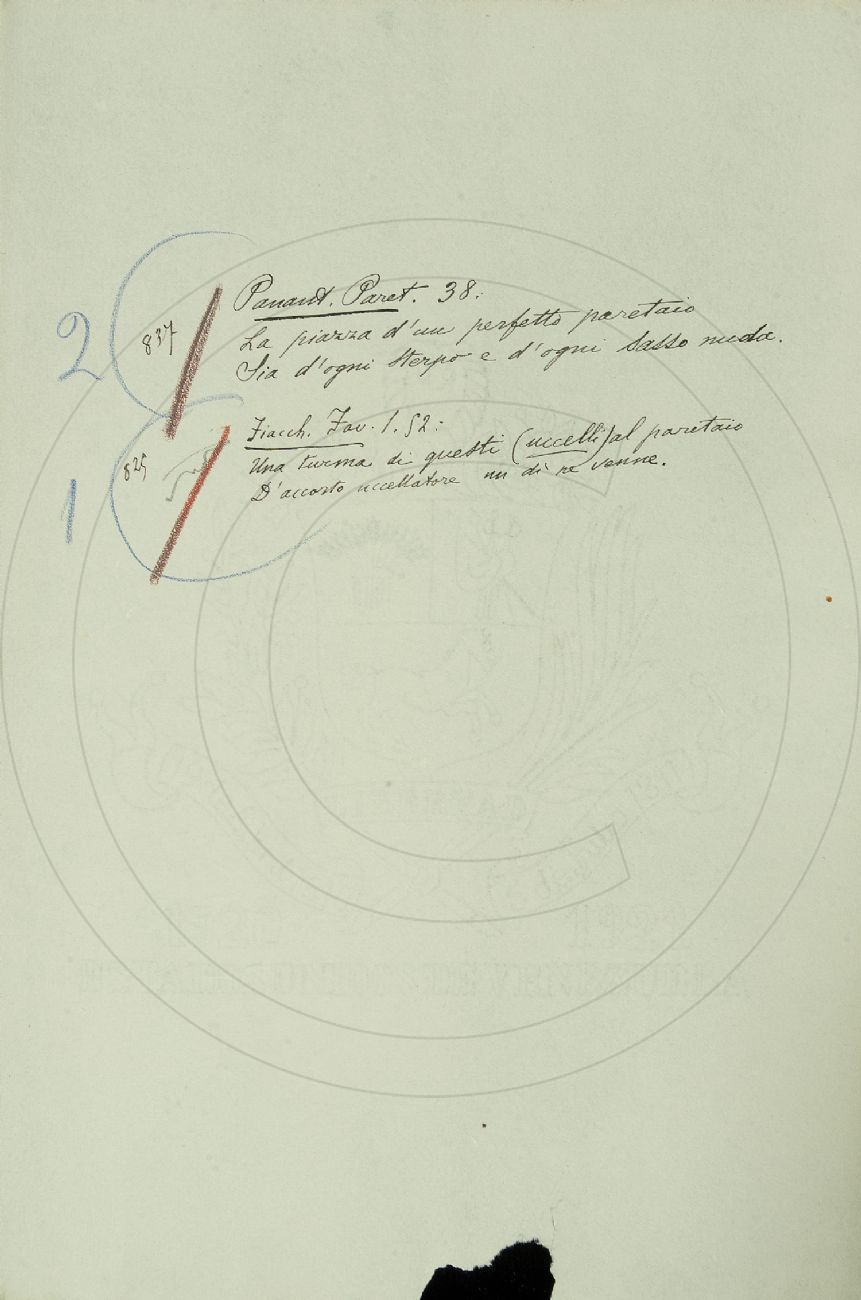 2
837
Panant. Paret. 38:
La piazza d'un perfetto paretaio
Sia d'ogni sterpo e d'ogni sasso nuda.
1
825
Fiacch. Fav. 1. 52:
Una turma di questi (uccelli) al paretaio
D'accorto uccellatore un dì ne venne.